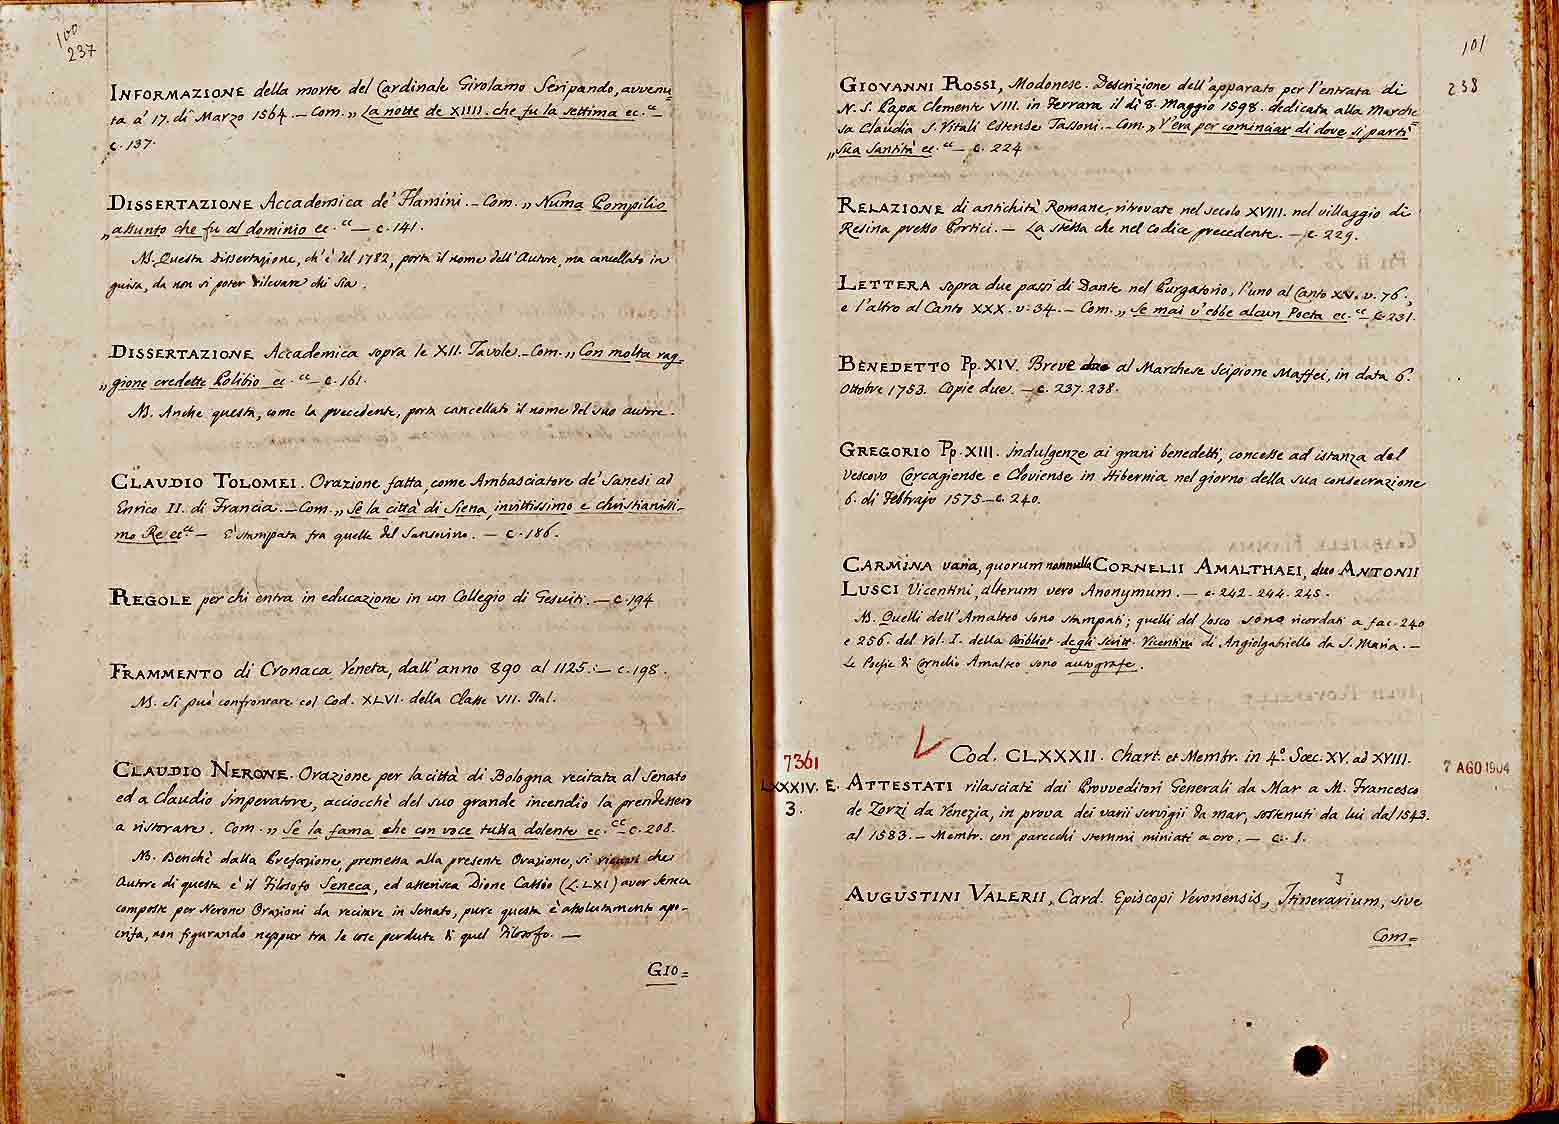 100
237
INFORMAZIONE della morte del Cardinale Girolamo Seripando, avvenu=
ta a' 17. di Marzo 1564. — Com. „ La notte de XIIII. che fu la settima ec. “ —
c. 137.
DISSERTAZIONE Accademica de' Flamini. — Com. „ Numa Pompilio
„ assunto che fu al dominio ec. “ — c. 141.
NB. Questa Dissertazione, ch'è del 1782, porta il nome dell'Autore, ma cancellato in
guisa, da non si poter rilevare chi sia.
DISSERTAZIONE Accademica sopra le XII. Tavole. — Com. „ Con molta rag-
„ gione credette Polibio ec. “ — c. 161.
NB. Anche questa, come la precedente, porta cancellato il nome del suo autore.
CLAUDIO TOLOMEI. Orazione fatta, come Ambasciatore de' Sanesi ad
Enrico II. di Francia. — Com. „ Se la città di Siena, invittissimo e christianissi-
mo Re ec. “ — È stampata fra quelle del Sansovino. — c. 186.
REGOLE per chi entra in educazione in un Collegio di Gesuiti. — c. 194
FRAMMENTO di Cronaca Veneta, dall'anno 890 al 1125. — c. 198.
NB. Si può confrontare col Cod. XLVI. della Classe VII. Ital.
CLAUDIO NERONE. Orazione per la città di Bologna recitata al Senato
ed a Claudio Imperatore, acciocchè del suo grande incendio la prendessero
a ristorare. Com. „ Se la fama che con voce tutta dolente ec. “ — c. 208.
NB. Benchè dalla Prefazione, premessa alla presente Orazione, si ricavi che
Autore di questa è il Filosofo Seneca, ed asserisca Dione Cassio (L. LXI) aver Seneca
composte per Nerone Orazioni da recitare in Senato, pure questa è assolutamente apo-
crifa, non figurando neppur tra le cose perdute di quel Filosofo. —
GIO=
101
238
GIOVANNI ROSSI, Modonese. Descrizione dell'apparato per l'entrata di
N. S. Papa Clemente VIII. in Ferrara il dì 8. Maggio 1598. dedicata alla Marche=
sa Claudia S. Vitali Estense Tassoni. — Com. „ V'era per cominciar di dove si partì
„ Sua Santità ec. “ — c. 224
RELAZIONE di antichità Romane, ritrovate nel secolo XVIII. nel villaggio di
Resina presso Portici. — La stessa che nel Codice precedente. — c. 229.
LETTERA sopra due passi di Dante nel Purgatorio, l'uno al Canto XV. v. 76.,
e l'altro al Canto XXX. v. 34. — Com. „ Se mai v'ebbe alcun Poeta ec. “ c. 231.
BENEDETTO Pp. XIV. Breve al Marchese Scipione Maffei, in data 6.
Ottobre 1753. Copie due. — c. 237. 238.
GREGORIO Pp. XIII. Indulgenze ai grani benedetti, concesse ad istanza del
Vescovo Corcagiense e Cloviense in Hibernia nel giorno della sua consecrazione
6. di Febbrajo 1575 — c. 240.
CARMINA varia, quorum nonnulla CORNELII AMALTHAEI, duo ANTONII
LUSCI Vicentini, alterum vero Anonymum. — c. 242. 244. 245.
NB. Quelli dell'Amalteo sono stampati; quelli del Losco sono ricordati a fac. 240
e 256. del Vol. I. della Bibliot. degli Scritt. Vicentini di Angiolgabriello da S. Maria. —
Le Poesie di Cornelio Amalteo sono autografe.
7361
Cod. CLXXXII. Chart. et Membr. in 4º. Sæc. XV. ad XVIII.
7 AGO 1904
LXXXIV. E.
3.
ATTESTATI rilasciati dai Provveditori Generali da Mar a M. Francesco
de Zorzi da Venezia, in prova dei varii servigii da mar, sostenuti da lui dal 1543.
al 1583. — Membr. con parecchi stemmi miniati a oro. — c. 1.
AUGUSTINI VALERII, Card. Episcopi Veronensis, Itinerarium, sive
Com=